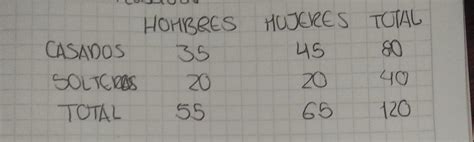 HOMBRES MUJERES TOTAL
CASADOS 35 45 80
SOLTEROS 20 20 40
TOTAL 55 65 120